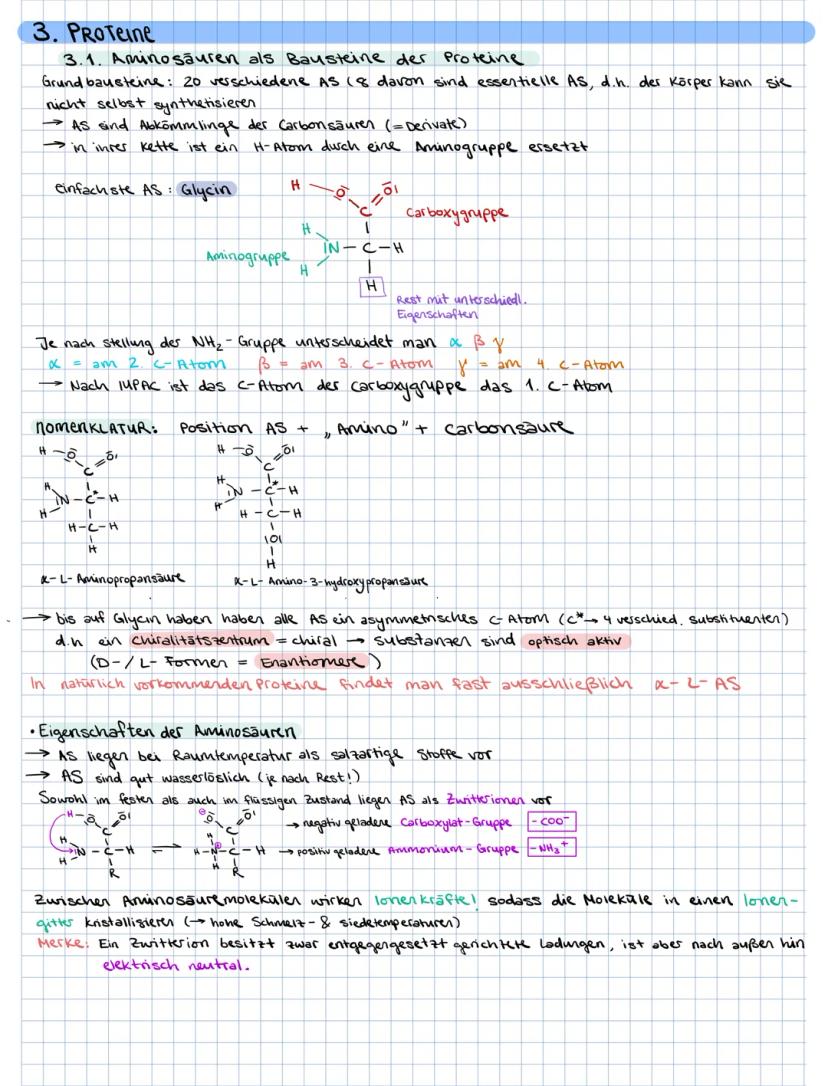 3. PROTEINE
3.1. Aminosäuren als Bausteine der Proteine
Grundbausteine: 20 verschiedene AS (8 davon sind essentielle AS, d.h. der Körper kann sie
nicht selbst synthetisieren
→ AS sind Abkömmlinge der Carbonsäuren (= Derivate)
→ in ihrer Kette ist ein H-Atom durch eine Aminogruppe ersetzt
einfachste AS: Glycin
H O O
C Carboxygruppe
H
Aminogruppe N - C - H
H
H
Rest mit unterschiedl.
Eigenschaften
Je nach Stellung der NH₂-Gruppe unterscheidet man α β γ
α = am 2. C-Atom β = am 3. C-Atom γ = am 4. C-Atom
→ Nach IUPAC ist das C-Atom der Carboxygruppe das 1. C-Atom
NOMENKLATUR: Position AS + „Amino" + Carbonsäure
H - O O H - O O
C C
H H
N - C* - H N - C* - H
H H
H - C - H H - C - H
H O
H
α-L-Aminopropansäure α-L-Amino-3-hydroxypropansäure
→ bis auf Glycin haben haben alle AS ein asymmetrisches C-Atom (C* → 4 verschied. Substituenten)
d.h ein Chiralitätszentrum = chiral → Substanzen sind optisch aktiv
(D-/L-Formen = Enantiomere)
In natürlich vorkommenden Proteine findet man fast ausschließlich α-L-AS
• Eigenschaften der Aminosäuren
→ AS liegen bei Raumtemperatur als salzartige Stoffe vor
→ AS sind gut wasserlöslich (je nach Rest!)
Sowohl im festen als auch im flüssigen Zustand liegen AS als Zwitterionen vor
H - O O ⊖ O O → negativ geladene Carboxylat-Gruppe -COO⁻
C C
H H
N - C - H ⇌ H - N⊕ - C - H → positiv geladene Ammonium-Gruppe -NH₃⁺
H H
R R
Zwischen Aminosäuremolekülen wirken Ionenkräfte! sodass die Moleküle in einen Ionen-
gitter kristallisieren (→ hohe Schmelz- & Siedetemperaturen)
Merke: Ein Zwitterion besitzt zwar entgegengesetzt gerichtete Ladungen, ist aber nach außen hin
elektrisch neutral.